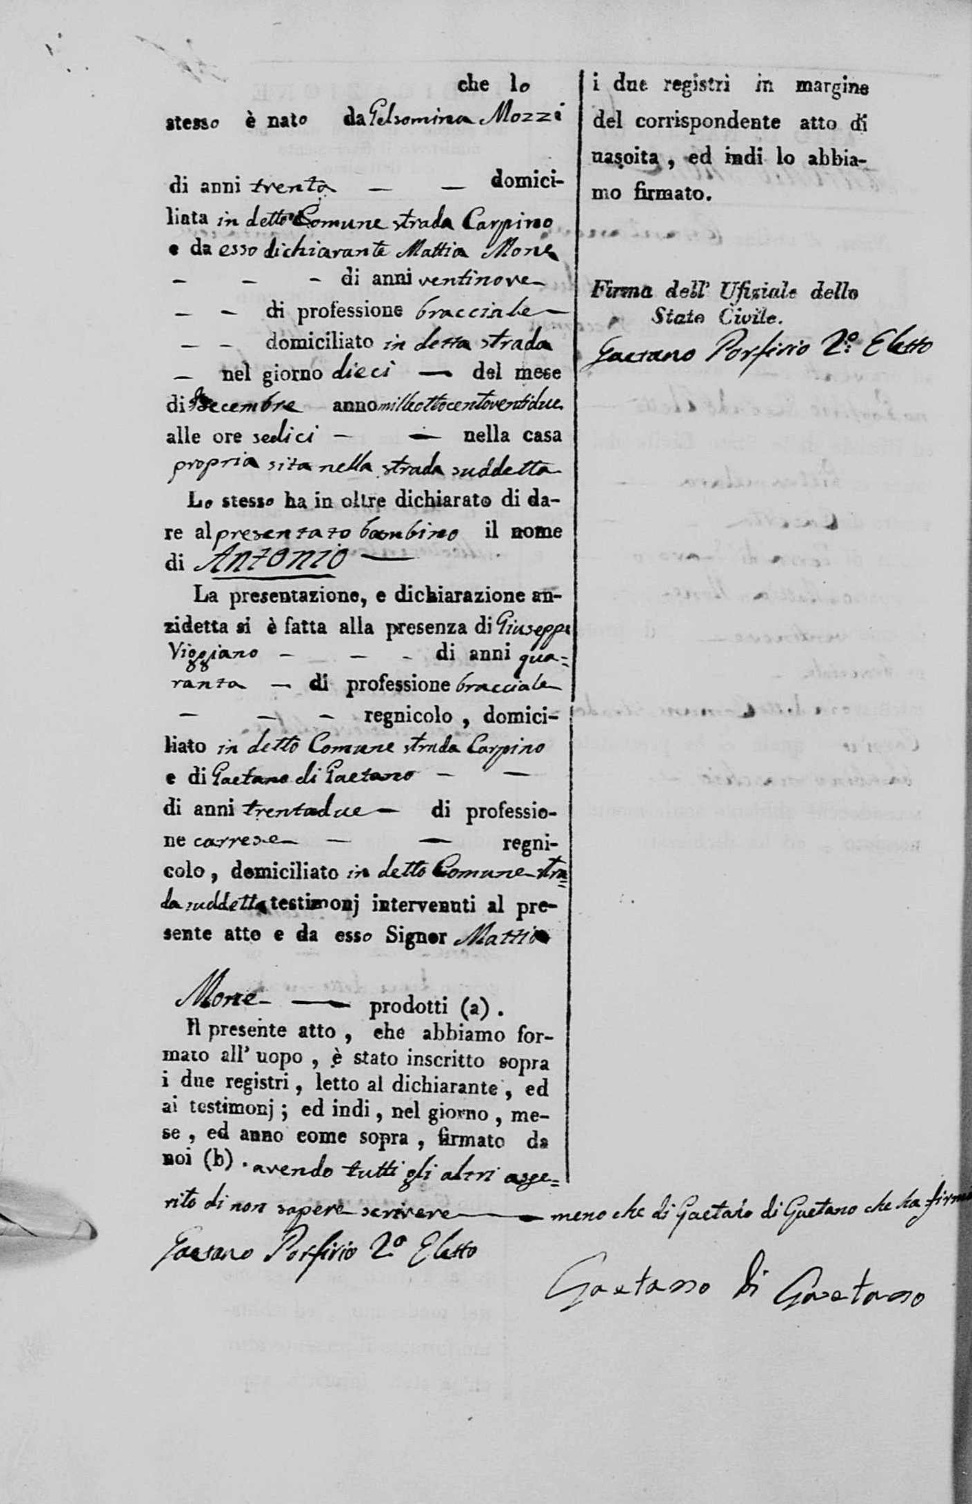 che lo
stesso è nato da Gelsomina Mozzi
di anni trenta — — domici-
liata in detto Comune strada Carpino
e da esso dichiarante Mattia Mone
— — — di anni ventinove
— — di professione bracciale —
— — domiciliato in detta strada
— nel giorno dieci — del mese
di Decembre anno milleottocentoventidue
alle ore sedici — — nella casa
propria sita nella strada suddetta
Lo stesso ha in oltre dichiarato di da-
re al presentato bambino il nome
di Antonio —
La presentazione, e dichiarazione an-
zidetta si è fatta alla presenza di Giuseppe
Viggiano — — — di anni qua=
ranta — di professione bracciale
— — — regnicolo, domici-
liato in detto Comune strada Carpino
e di Gaetano di Gaetano — —
di anni trentadue — di professio-
ne carrese — — — regni-
colo, domiciliato in detto Comune stra=
da suddetta testimonj intervenuti al pre-
sente atto e da esso Signor Mattia
Mone — prodotti (a).
Il presente atto, che abbiamo for-
mato all' uopo, è stato inscritto sopra
i due registri, letto al dichiarante, ed
ai testimonj; ed indi, nel giorno, me-
se, ed anno come sopra, firmato da
noi (b). avendo tutti gli altri asse=
rito di non sapere scrivere — meno che di Gaetano di Gaetano che ha firma
Gaetano Porfirio 2.º Eletto
Gaetano di Gaetano
i due registri in margine
del corrispondente atto di
nascita, ed indi lo abbia-
mo firmato.
Firma dell' Ufiziale dello
Stato Civile.
Gaetano Porfirio 2.º Eletto